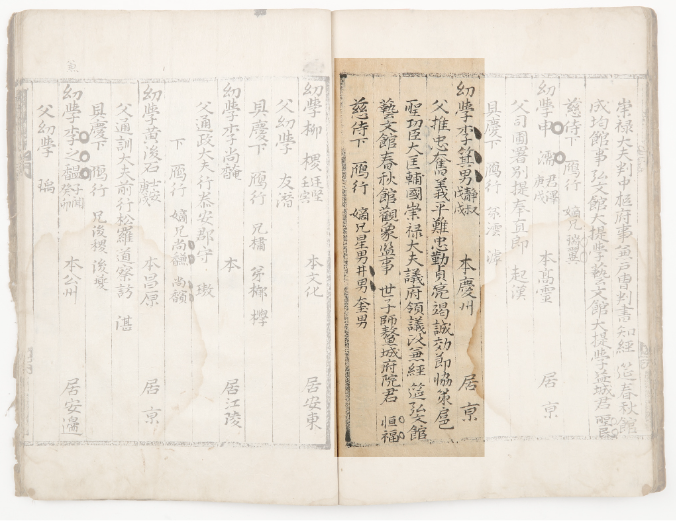 崇禄大夫判中樞府事兼戶曹判書知經 筵春秋館
成均館事弘文館大提學藝文館大提學益城君
慈侍下 鴈行 嫡兄
幼學申 本高靈 居京
父司圃署別提奉直郎 起漢
具慶下 鴈行
幼學李箕男靜叔 本慶州 居京
父推忠奮義平難忠勤貞亮竭誠効節協策扈
聖功臣大匡輔國崇禄大夫議府領議政兼經 筵弘文館
藝文館春秋館觀象監事 世子師鰲城府院君 恒福
慈侍下 鴈行 嫡兄星男井男 奎男
幼學柳 本文化 居安東
父幼學 友潛
具慶下 鴈行 兄橚 弟
幼學李尚馣 本 居江陵
父通政大夫行泰安郡守 墩
下 鴈行 嫡兄尚 尚
幼學黃浚石 本昌原 居京
父通訓大夫前行松羅道察訪 湛
具慶下 鴈行 兄浚稷 浚
幼學李之 本公州 居安邊
父幼學